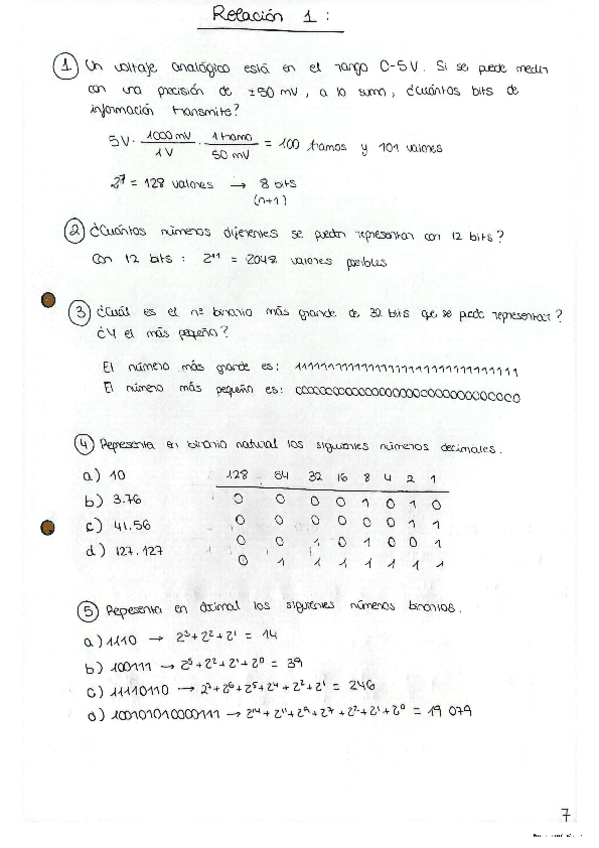 Relación 1:
1 Un voltaje analógico está en el rango 0-5V. Si se puede medir
con una precisión de ±50 mV, a lo sumo, ¿cuántos bits de
información transmite?
5V · 1000 mV / 1V · 1 tramo / 50 mV = 100 tramos y 101 valores
2⁷ = 128 valores → 8 bits
(n+1)
2 ¿Cuántos números diferentes se pueden representar con 12 bits?
Con 12 bits : 2¹¹ = 2048 valores posibles
3 ¿Cuál es el nº binario más grande de 32 bits que se puede representar?
¿Y el más pequeño?
El número más grande es: 11111111111111111111111111111111
El número más pequeño es: 00000000000000000000000000000000
4 Representa en binario natural los siguientes números decimales.
a) 10
b) 3.76
c) 41.56
d) 127.127
128 64 32 16 8 4 2 1
0 0 0 0 1 0 1 0
0 0 0 0 0 0 1 1
0 0 1 0 1 0 0 1
0 1 1 1 1 1 1 1
5 Representa en decimal los siguientes números binarios.
a) 1110 → 2³+2²+2¹ = 14
b) 100111 → 2⁵+2²+2¹+2⁰ = 39
c) 11110110 → 2⁷+2⁶+2⁵+2⁴+2²+2¹ = 246
d) 100101010000111 → 2¹⁴+2¹¹+2⁹+2⁷+2²+2¹+2⁰ = 19 079
7